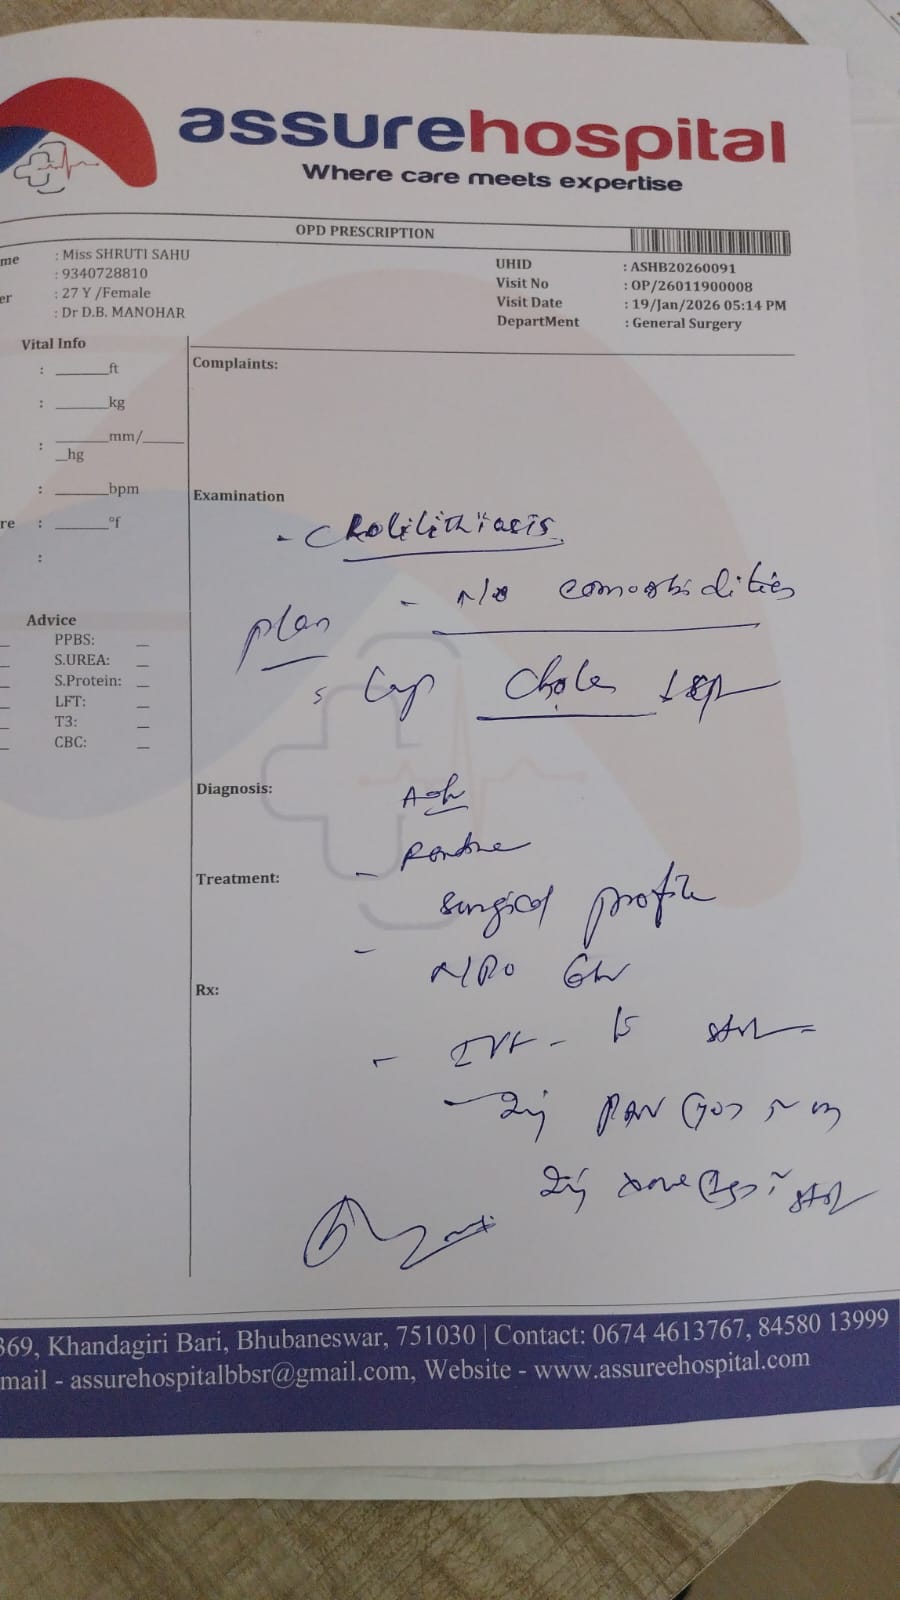 assurehospital
Where care meets expertise
OPD PRESCRIPTION
me : Miss SHRUTI SAHU
: 9340728810
er : 27 Y /Female
: Dr D.B. MANOHAR
UHID : ASHB20260091
Visit No : OP/26011900008
Visit Date : 19/Jan/2026 05:14 PM
DepartMent : General Surgery
Vital Info
: ______ft
: ______kg
: ______mm/______
__hg
: ______bpm
re : ______°f
:
Advice
PPBS: _
S.UREA: _
S.Protein: _
LFT: _
T3: _
CBC: _
Complaints:
Examination
- Cholilithiasis
- N/o comorbidities
plan
Lap Chole
Diagnosis:
Adv
- Routine
Treatment:
surgical profile
- NPO 6h
Rx:
- IVF -
- Inj PAN
Inj
369, Khandagiri Bari, Bhubaneswar, 751030 | Contact: 0674 4613767, 84580 13999
mail - assurehospitalbbsr@gmail.com, Website - www.assureehospital.com